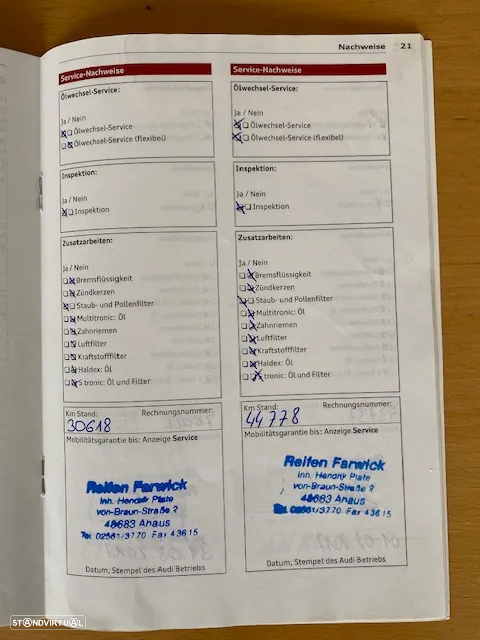 Nachweise 21
Service-Nachweise
Ölwechsel-Service:
Ja / Nein
Ölwechsel-Service
Ölwechsel-Service (flexibel)
Inspektion:
Ja / Nein
Inspektion
Zusatzarbeiten:
Ja / Nein
Bremsflüssigkeit
Zündkerzen
Staub- und Pollenfilter
Multitronic: Öl
Zahnriemen
Luftfilter
Kraftstofffilter
Haldex: Öl
S tronic: Öl und Filter
Km Stand: Rechnungsnummer:
30618
Mobilitätsgarantie bis: Anzeige Service
Reifen Farwick
Inh. Hendrix Plate
von-Braun-Straße 2
48683 Ahaus
Tel. 02561/3770 Fax 43615
Datum, Stempel des Audi Betriebs
Service-Nachweise
Ölwechsel-Service:
Ja / Nein
Ölwechsel-Service
Ölwechsel-Service (flexibel)
Inspektion:
Ja / Nein
Inspektion
Zusatzarbeiten:
Ja / Nein
Bremsflüssigkeit
Zündkerzen
Staub- und Pollenfilter
Multitronic: Öl
Zahnriemen
Luftfilter
Kraftstofffilter
Haldex: Öl
S tronic: Öl und Filter
Km Stand: Rechnungsnummer:
44778
Mobilitätsgarantie bis: Anzeige Service
Reifen Farwick
Inh. Plate
von-Braun-Straße 2
48683 Ahaus
Tel. 02561/3770 Fax 43615
Datum, Stempel des Audi Betriebs
STANDVIRTUAL